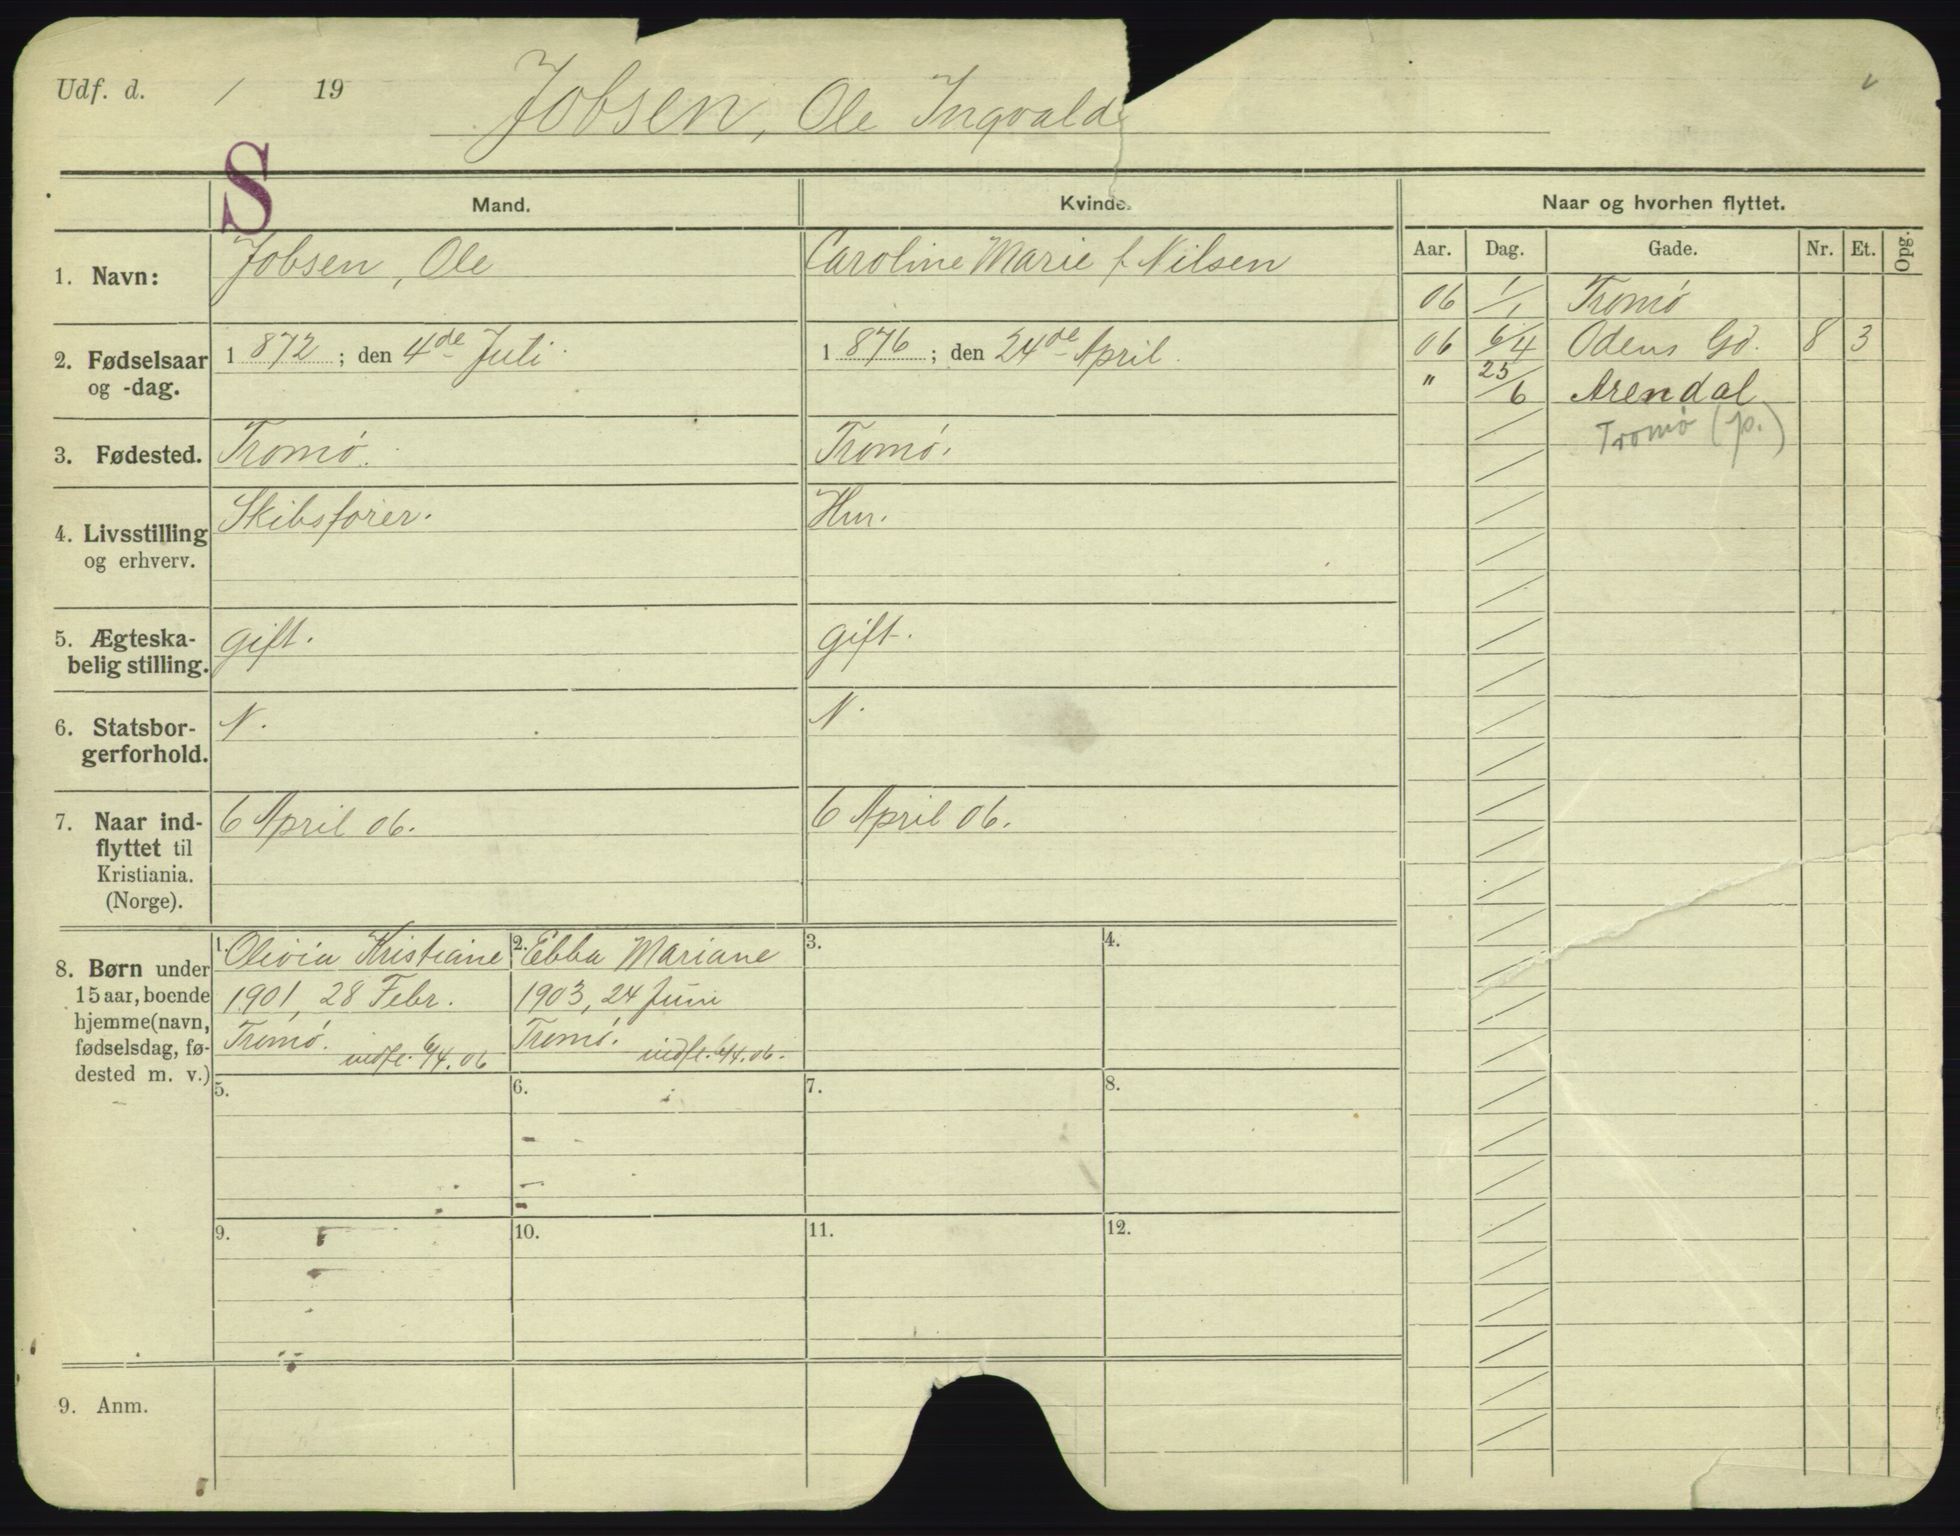 Udf. d. / 19
Jobsen, Ole Ingvald
S
Mand. Kvinde. Naar og hvorhen flyttet.
Aar. Dag. Gade. Nr. Et. Opg.
1. Navn: Jobsen, Ole Caroline Marie f Nilsen
06 1/1 Tromø
2. Fødselsaar og -dag. 1 872 ; den 4de Juli. 1 876 ; den 24de April.
06 6/4 Odens Gd. 8 3
" 25/6 Arendal
Tromø (p.)
3. Fødested. Tromø. Tromø.
4. Livsstilling og erhverv. Skibsfører. Hm.
5. Ægteska-
belig stilling. gift. gift.
6. Statsbor-
gerforhold. N. N.
7. Naar ind-
flyttet til
Kristiania.
(Norge). 6 April 06. 6 April 06.
8. Børn under
15 aar, boende
hjemme (navn,
fødselsdag, fø-
dested m. v.)
1. Olivia Kristiane
1901, 28 Febr.
Tromø.
indfl. 6/4. 06
2. Ebba Mariane
1903, 24 Juni
Tromø.
indfl. 6/4. 06.
3. 4.
5. 6. 7. 8.
9. 10. 11. 12.
9. Anm.